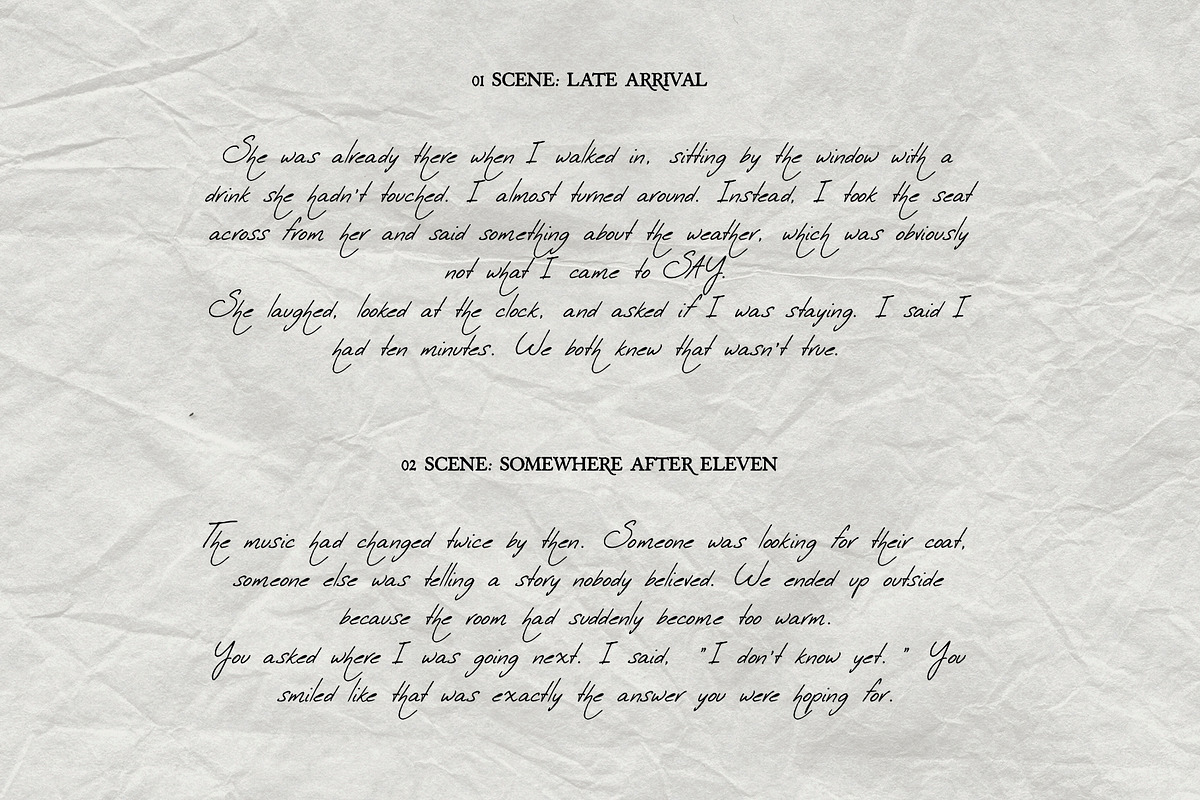 01 SCENE: LATE ARRIVAL
She was already there when I walked in, sitting by the window with a
drink she hadn't touched. I almost turned around. Instead, I took the seat
across from her and said something about the weather, which was obviously
not what I came to SAY.
She laughed, looked at the clock, and asked if I was staying. I said I
had ten minutes. We both knew that wasn't true.
02 SCENE: SOMEWHERE AFTER ELEVEN
The music had changed twice by then. Someone was looking for their coat,
someone else was telling a story nobody believed. We ended up outside
because the room had suddenly become too warm.
You asked where I was going next. I said, "I don't know yet. " You
smiled like that was exactly the answer you were hoping for.